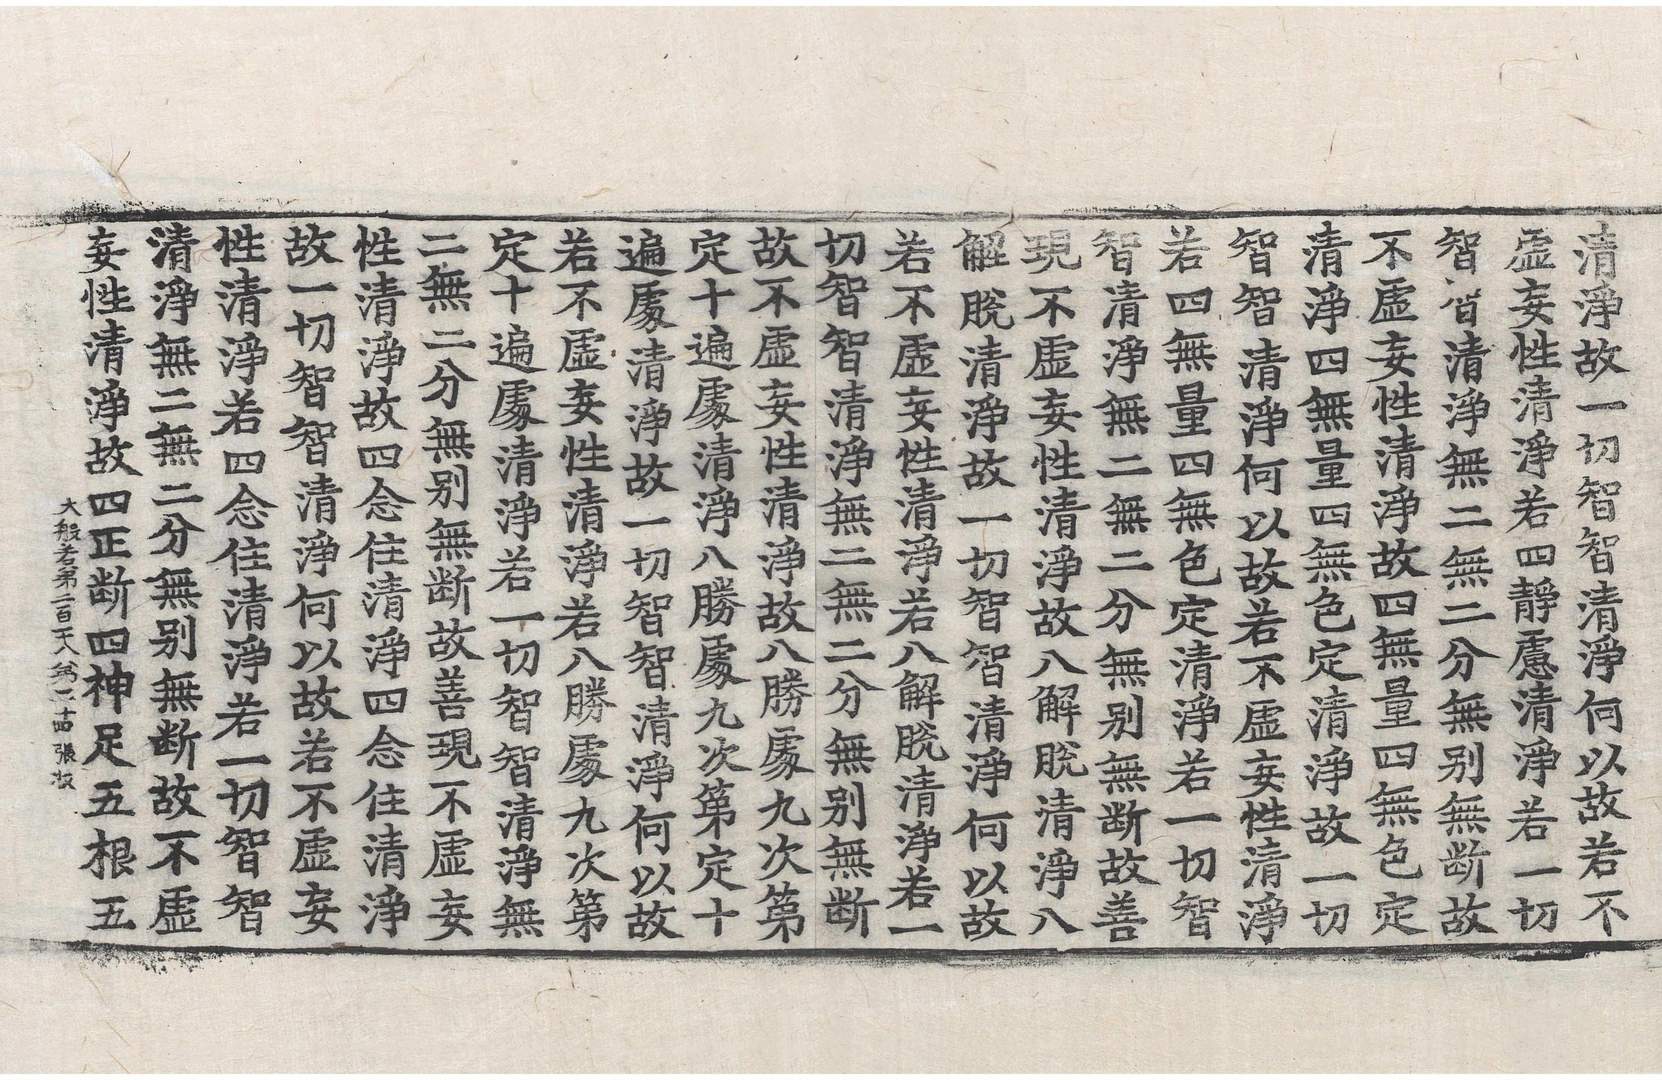 清淨故一切智智清淨何以故若不
虛妄性清淨若四靜慮清淨若一切
智智清淨無二無二分無别無断故
不虛妄性清淨故四無量四無色定
清淨四無量四無色定清淨故一切
智智清淨何以故若不虛妄性清淨
若四無量四無色定清淨若一切智
智清淨無二無二分無别無断故善
現不虛妄性清淨故八解脫清淨八
解脫清淨故一切智智清淨何以故
若不虛妄性清淨若八解脫清淨若一
切智智清淨無二無二分無别無断
故不虛妄性清淨故八勝處九次第
定十遍處清淨八勝處九次第定十
遍處清淨故一切智智清淨何以故
若不虛妄性清淨若八勝處九次第
定十遍處清淨若一切智智清淨無
二無二分無别無断故善現不虛妄
性清淨故四念住清淨四念住清淨
故一切智智清淨何以故若不虛妄
性清淨若四念住清淨若一切智智
清淨無二無二分無别無断故不虛
妄性清淨故四正断四神足五根五
大般若第二百第二十四張